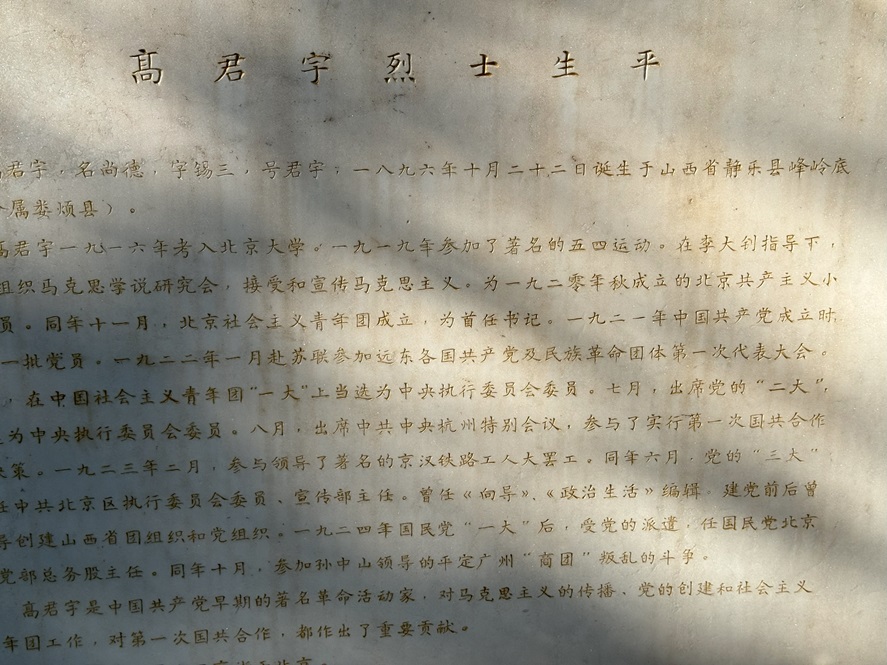 高君宇烈士生平
君宇，名尚德，字锡三，号君宇，一八九六年十月二十二日诞生于山西省静乐县峰岭底
属娄烦县）。
高君宇一九一六年考入北京大学。一九一九年参加了著名的五四运动。在李大钊指导下，
组织马克思学说研究会，接受和宣传马克思主义。为一九二零年秋成立的北京共产主义小
员。同年十一月，北京社会主义青年团成立，为首任书记。一九二一年中国共产党成立时，
一批党员。一九二二年一月赴苏联参加远东各国共产党及民族革命团体第一次代表大会。
，在中国社会主义青年团“一大”上当选为中央执行委员会委员。七月，出席党的“二大”，
为中央执行委员会委员。八月，出席中共中央杭州特别会议，参与了实行第一次国共合作
策。一九二三年二月，参与领导了著名的京汉铁路工人大罢工。同年六月，党的“三大”
任中共北京区执行委员会委员、宣传部主任。曾任《向导》、《政治生活》编辑。建党前后曾
导创建山西省团组织和党组织。一九二四年国民党“一大”后，受党的派遣，任国民党北京
党部总务股主任。同年十月，参加孙中山领导的平定广州“商团”叛乱的斗争。
高君宇是中国共产党早期的著名革命活动家，对马克思主义的传播、党的创建和社会主义
年团工作，对第一次国共合作，都作出了重要贡献。